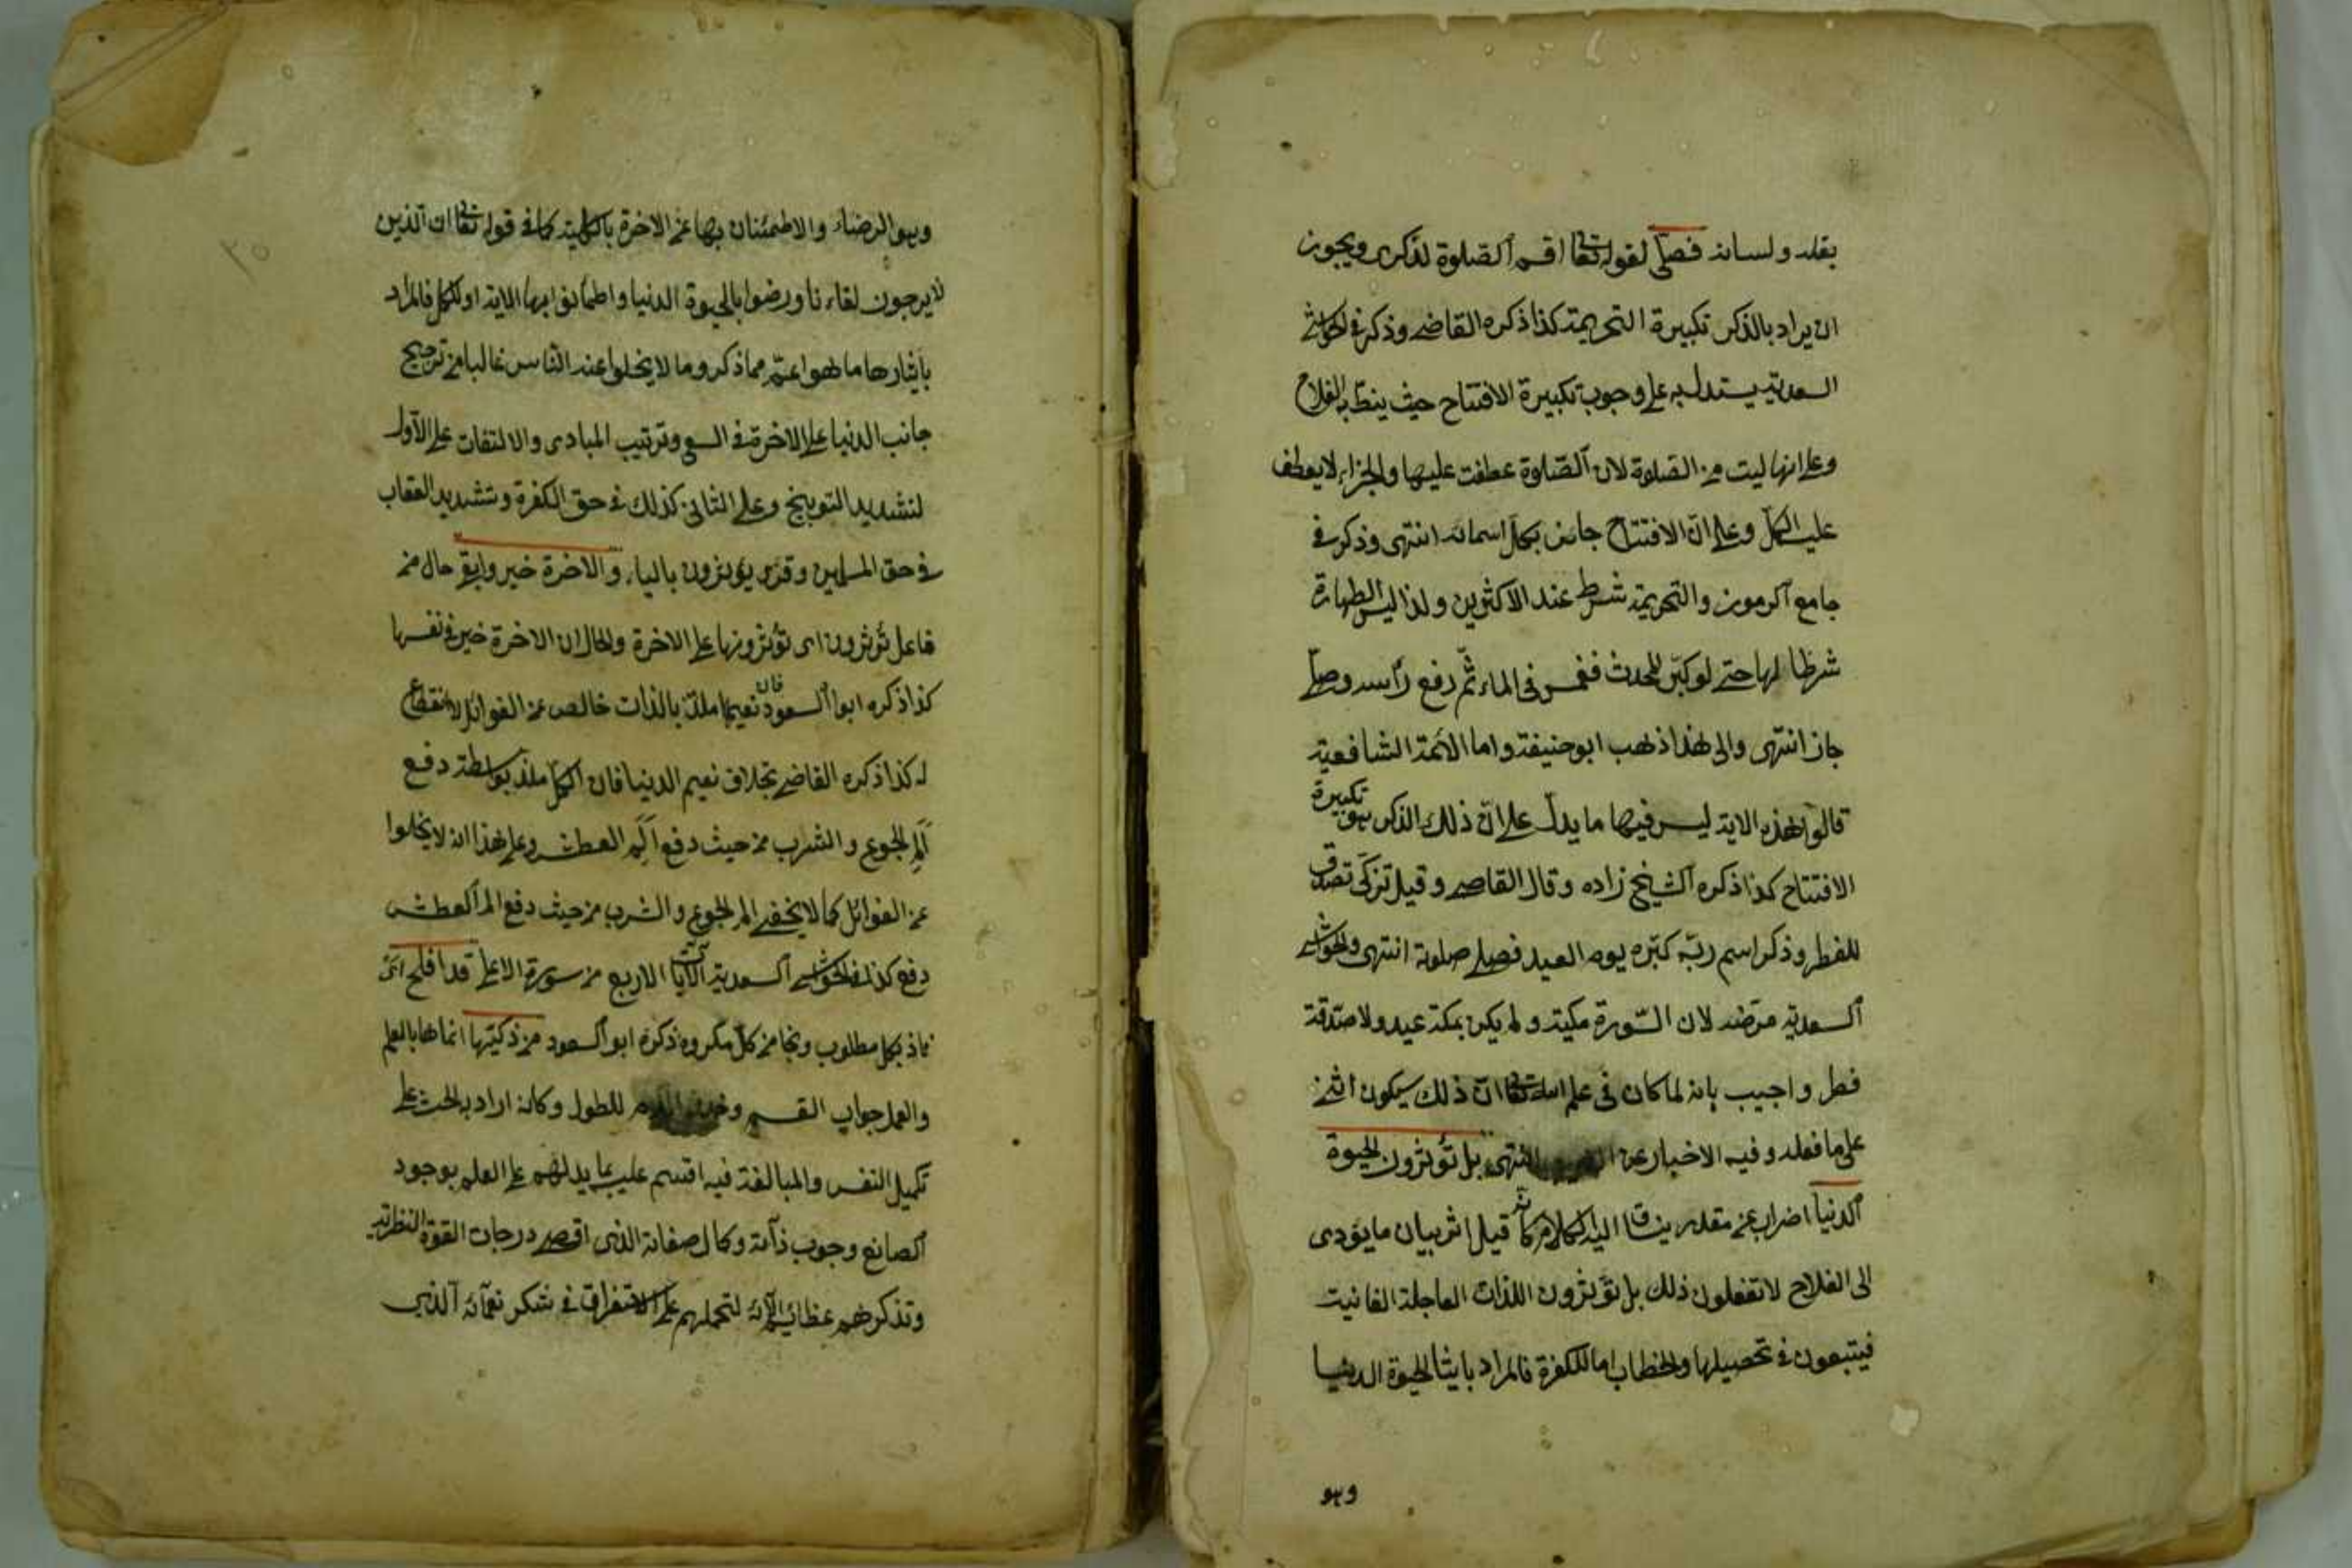 بقلبه ولسانه فصلى لقوله تعا اقم الصلوة لذكرى ويجوز
ان يراد بالذكر تكبيرة التحريمة كذا ذكره القاضى وذكر فى الحواشى
السعدية يستدل به على وجوب تكبيرة الافتتاح حيث ينط به الفلاح
وعلى انها ليت من الصلوة لان الصلوة عطفت عليها والجزاء لا يعطف
على الكل وعلى ان الافتتاح جائز بكل اسمائه انتهى وذكر فى
جامع الرموز والتحريمة شرط عند الاكثرين ولذا ليس الطهارة
شرطا لها حتى لو كبر المحدث فغمس فى الماء ثم رفع رأسه وصلى
جاز انتهى والى هذا ذهب ابو حنيفة واما الائمة الشافعية
قالوا هذه الاية ليس فيها ما يدل على ان ذلك الذكر هو تكبيرة
الافتتاح كذا ذكره الشيخ زاده وقال القاضى وقيل تزكى تصدق
للفطر وذكر اسم ربه كبره يوم العيد فصلى صلوته انتهى والحواشى
السعدية مرضه لان السورة مكية ولم يكن بمكة عيد ولا صدقة
فطر واجيب بانه لما كان فى علم الله تعا ان ذلك سيكون اثنى
على ما فعله وفيه الاخبار عن انتهى بل تؤثرون الحيوة
الدنيا اضراب عن مقدر ينساق اليه الكلام كانه قيل اثر بيان ما يؤدى
الى الفلاح لا تفعلون ذلك بل تؤثرون اللذات العاجلة الفانيت
فيتبعون فى تحصيلها والخطاب اما للكفرة فالمراد بايثا الحيوة الدنيا
وهو
وهو الرضاء والاطمئنان بها عن الاخرة بالكلية كما فى قوله تعا ان الذين
لا يرجون لقاءنا ورضوا بالحيوة الدنيا واطمأنوا بها الاية او للكل فالمراد
بايثارها ما هو اعم مما ذكر وما لا يخلوا عند الناس غالبا من ترجيح
جانب الدنيا على الاخرة فى السعى وترتيب المبادى والالتفات على الاول
لتشديد التوبيخ وعلى الثانى كذلك فى حق الكفرة وتشديد العقاب
فى حق المسلمين وقرئ يؤثرون بالياء والاخرة خير وابقى حال من
فاعل تؤثرون اى تؤثرونها على الاخرة والحال ان الاخرة خير فى نفسها
كذا ذكره ابو السعود فان نعيمها ملذ بالذات خالص عن الغوائل لا انقطاع
له كذا ذكره القاضى بخلاف نعيم الدنيا فان الكل ملذ بواسطة دفع
الم الجوع والشرب من حيث دفع الم العطش وعلى هذا انه لا يخلوا
عن الغوائل كما لا يخفى الم الجوع والشرب من حيث دفع الم العطش
دفع كذا فى الحواشى السعدية الآيات الاربع من سورة الاعلى قد افلح اى
فاذ بكل مطلوب ونجا من كل مكروه ذكره ابو السعود من زكيها انماها بالعلم
والعمل جواب القسم وحذف اللام للطول وكانه اراد به الحث على
تكميل النفس والمبالغة فيه اقسم عليه بما يدلهم على العلم بوجود
الصانع وجوب ذاته وكمال صفاته الذى اقصى درجات القوة النظرية
وتذكرهم عظائم آلائه لتحملهم على الاستغراق فى شكر نعمائه الذى